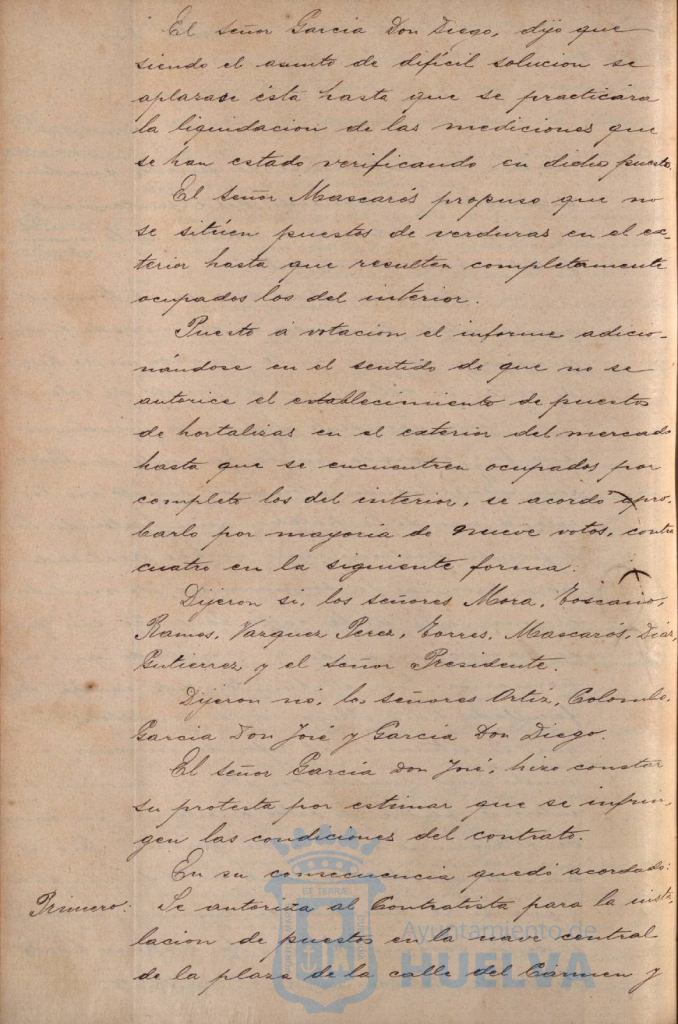 El señor Garcia Don Diego, dijo que
siendo el asunto de dificil solucion se
aplazase ésta hasta que se practicára
la liquidacion de las mediciones que
se han estado verificando en dicho puesto.
El señor Mascarós propuso que no
se sitúen puestos de verduras en el ex-
terior hasta que resulten completamente
ocupados los del interior.
Puesto á votacion el informe adicio-
nándose en el sentido de que no se
autorice el establecimiento de puestos
de hortalizas en el exterior del mercado
hasta que se encuentren ocupados por
completo los del interior, se acordó apro-
barlo por mayoria de nueve votos, contra
cuatro en la siguiente forma:
Dijeron si, los señores Mora, Toscano,
Ramos, Vazquez Perez, Torres, Mascarós, Diaz,
Gutierrez y el señor Presidente.
Dijeron nó, los señores Ortiz, Colombo,
Garcia Don José y Garcia Don Diego.
El señor Garcia Don José, hizo constar
su protesta por estimar que se infrin-
gen las condiciones del contrato.
En su consecuencia quedó acordado:
Primero: Se autoriza al Contratista para la insta-
lacion de puestos en la nave central
de la plaza de la calle del Cármen y
Ayuntamiento de
HUELVA